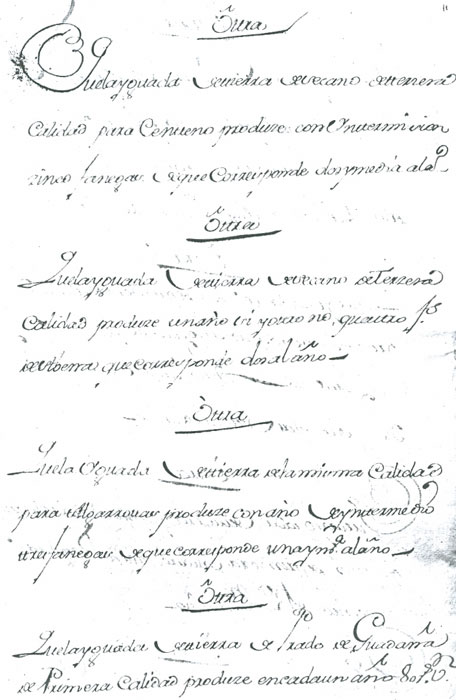 Otra
Que la yguada de tierra de secano de terzera
Calidad para Centeno produze con Yntermision
zinco fanegas, que Corresponde dos y media al aº
Otra
Que la yguada de tierra de secano de terzera
Calidad produze un año si y otro no, quattro fs
de que corresponde dos al año
Otra
Que la Yguada de tierra de la misma Calidad
para produze con año de yntermedio
tres fanegas que corresponde una y mª al año
Otra
Que la yguada de tierra de Prado de Guadaña
de Primera Calidad produze en cada un año